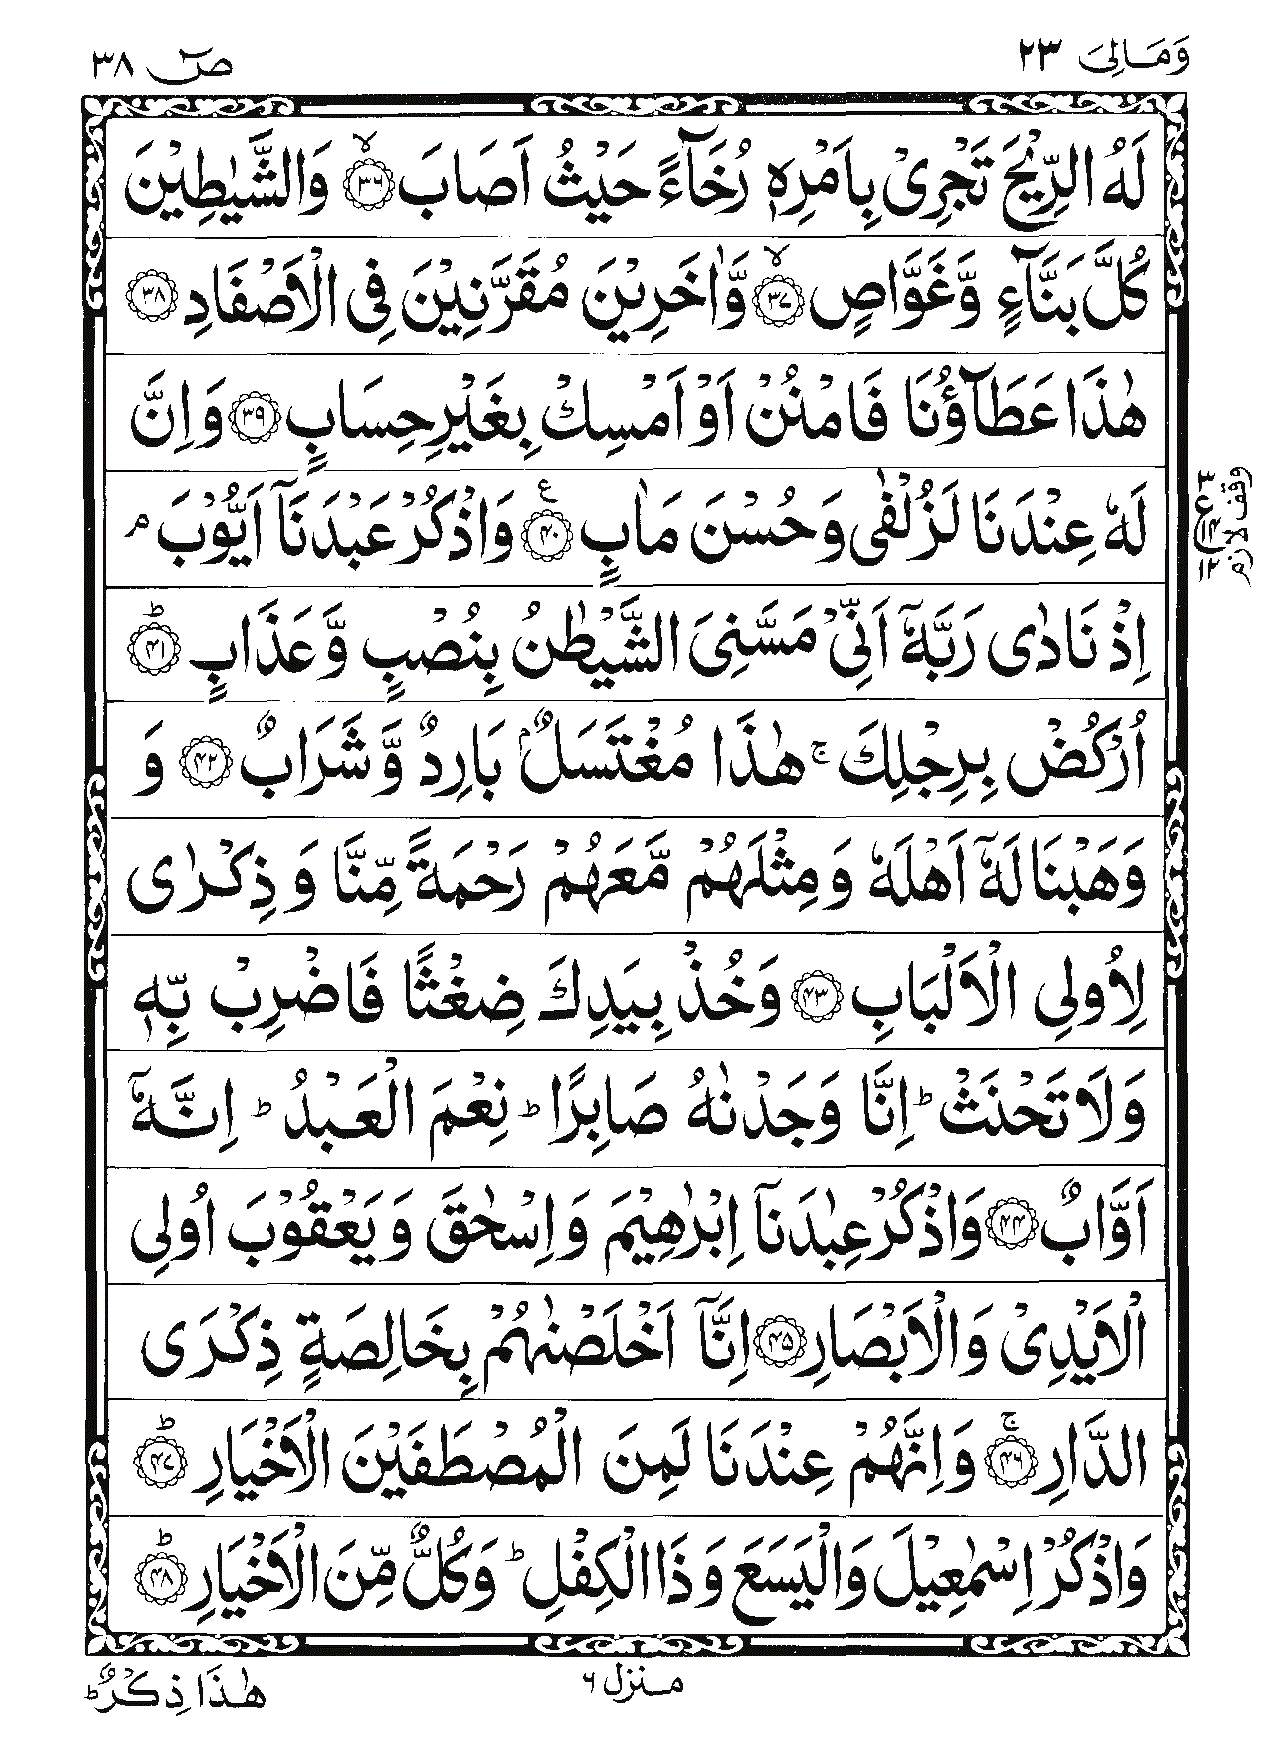 وَمَالِیَ ٢٣
صٓ ٣٨
لَهُ الرِّيْحَ تَجْرِیْ بِاَمْرِهٖ رُخَآءً حَيْثُ اَصَابَ ۙ﴿٣٦﴾ وَالشَّيٰطِيْنَ
كُلَّ بَنَّآءٍ وَّغَوَّاصٍ ۙ﴿٣٧﴾ وَّاٰخَرِيْنَ مُقَرَّنِيْنَ فِی الْاَصْفَادِ ﴿٣٨﴾
هٰذَا عَطَآؤُنَا فَامْنُنْ اَوْ اَمْسِكْ بِغَيْرِ حِسَابٍ ﴿٣٩﴾ وَاِنَّ
لَهٗ عِنْدَنَا لَزُلْفٰی وَحُسْنَ مَاٰبٍ ﴿٤٠﴾ ع وَاذْكُرْ عَبْدَنَآ اَيُّوْبَ ۘ
٣
ع
١٤
١٢
وقف لازم
اِذْ نَادٰی رَبَّهٗٓ اَنِّیْ مَسَّنِیَ الشَّيْطٰنُ بِنُصْبٍ وَّعَذَابٍ ؕ﴿٤١﴾
اُرْكُضْ بِرِجْلِكَ ۚ هٰذَا مُغْتَسَلٌۢ بَارِدٌ وَّشَرَابٌ ﴿٤٢﴾ وَ
وَهَبْنَا لَهٗٓ اَهْلَهٗ وَمِثْلَهُمْ مَّعَهُمْ رَحْمَةً مِّنَّا وَذِكْرٰی
لِاُولِی الْاَلْبَابِ ﴿٤٣﴾ وَخُذْ بِيَدِكَ ضِغْثًا فَاضْرِبْ بِّهٖ
وَلَا تَحْنَثْ ؕ اِنَّا وَجَدْنٰهُ صَابِرًا ؕ نِعْمَ الْعَبْدُ ؕ اِنَّهٗٓ
اَوَّابٌ ﴿٤٤﴾ وَاذْكُرْ عِبٰدَنَآ اِبْرٰهِيْمَ وَاِسْحٰقَ وَيَعْقُوْبَ اُولِی
الْاَيْدِیْ وَالْاَبْصَارِ ﴿٤٥﴾ اِنَّآ اَخْلَصْنٰهُمْ بِخَالِصَةٍ ذِكْرَی
الدَّارِ ۚ﴿٤٦﴾ وَاِنَّهُمْ عِنْدَنَا لَمِنَ الْمُصْطَفَيْنَ الْاَخْيَارِ ؕ﴿٤٧﴾
وَاذْكُرْ اِسْمٰعِيْلَ وَالْيَسَعَ وَذَا الْكِفْلِ ؕ وَكُلٌّ مِّنَ الْاَخْيَارِ ؕ﴿٤٨﴾
منزل ٦
هٰذَا ذِكْرٌ ؕ